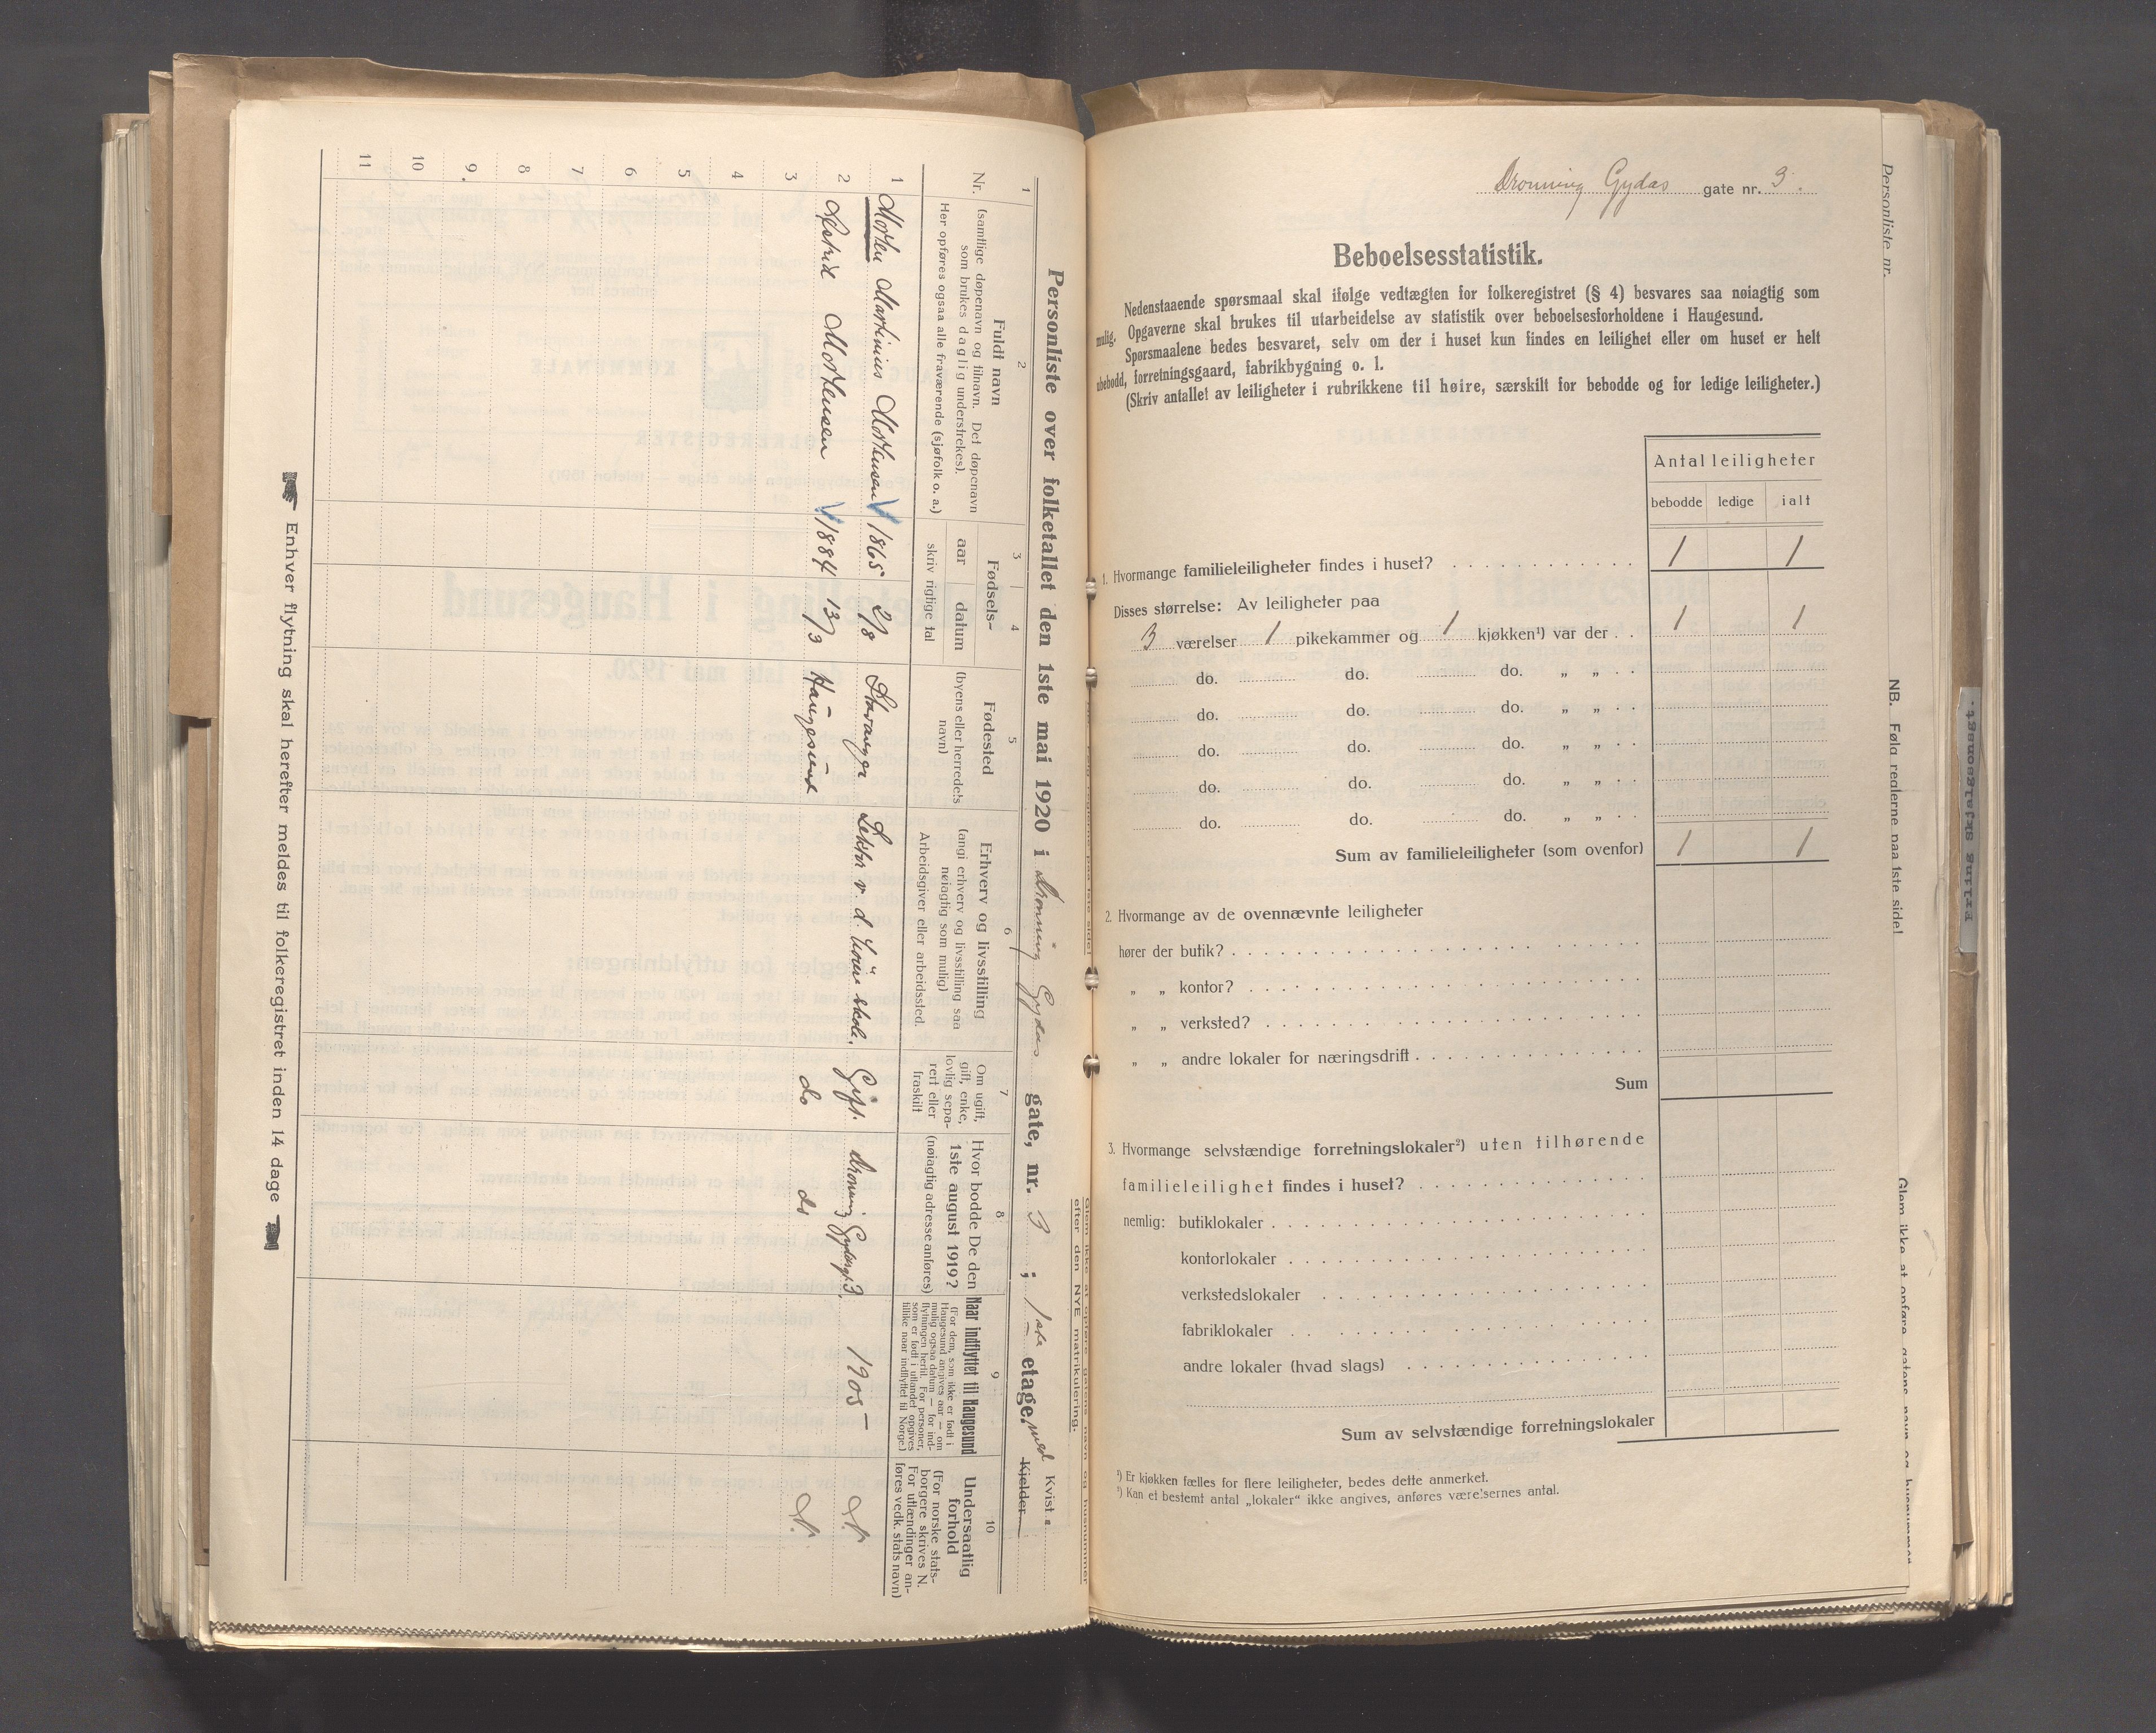 Personliste over folketallet den 1ste mai 1920 i Dronning Gydas gate, nr. 3 ; 1ste etage, med Kvist
Kjelder
Glem ikke at opføre gatens navn og husnummer
efter den NYE matrikulering.
1 2 3 4 5 6 7 8 9 10
Nr.
Fuldt navn
(samtlige døpenavn og tilnavn. Det døpenavn
som brukes daglig understrekes).
Her opføres ogsaa alle fraværende (sjøfolk o. a.)
Fødsels-
aar datum
skriv rigtige tal
Fødested
(byens eller herredets
navn)
Erhverv og livsstilling
(angi erhverv og livsstilling saa
nøiagtig som mulig)
Arbeidsgiver eller arbeidssted.
Om ugift,
gift, enke,
lovlig sepa-
rert eller
fraskilt
Hvor bodde De den
1ste august 1919?
(nøiagtig adresse anføres)
Naar indflyttet til Haugesund
(For dem, som ikke er født i
Haugesund angives aar — om
mulig ogsaa datum — for ind-
flytningen hertil. For personer,
som er født i utlandet opgives
tillike naar indflyttet til Norge.)
Undersaatlig
forhold
(For norske stats-
borgere skrives N.
For utlændinger an-
føres vedk. stats navn)
1 Morten Martinius Mortensen 1865 2/8 Stavanger Lektor v. d. høiere skole. Gift. Dronning Gydasgt. 3. 1905 — N.
2 Astrid Mortensen 1884 13/3 Haugesund do do N.
3
4
5
6
7
8
9.
10
11
Enhver flytning skal herefter meldes til folkeregistret inden 14 dage
Dronning Gydas gate nr. 3.
Beboelsesstatistik.
Nedenstaaende spørsmaal skal ifølge vedtægten for folkeregistret (§ 4) besvares saa nøiagtig som
mulig. Opgaverne skal brukes til utarbeidelse av statistik over beboelsesforholdene i Haugesund.
Spørsmaalene bedes besvaret, selv om der i huset kun findes en leilighet eller om huset er helt
ubebodd, forretningsgaard, fabrikbygning o. l.
(Skriv antallet av leiligheter i rubrikkene til høire, særskilt for bebodde og for ledige leiligheter.)
Antal leiligheter
bebodde ledige ialt
1. Hvormange familieleiligheter findes i huset? 1 1
Disses størrelse: Av leiligheter paa
3 værelser 1 pikekammer og 1 kjøkken¹) var der . . 1 1
do. do. do. „ „ . .
do. do. do. „ „ . .
do. do. do. „ „ . .
do. do. do. „ „ . .
do. do. do. „ „ . .
Sum av familieleiligheter (som ovenfor) 1 1
2. Hvormange av de ovennævnte leiligheter
hører der butik?
„ „ kontor?
„ „ verksted?
„ „ andre lokaler for næringsdrift
Sum
3. Hvormange selvstændige forretningslokaler²) uten tilhørende
familieleilighet findes i huset?
nemlig: butiklokaler
kontorlokaler
verkstedslokaler
fabriklokaler
andre lokaler (hvad slags)
Sum av selvstændige forretningslokaler
¹) Er kjøkken fælles for flere leiligheter, bedes dette anmerket.
²) Kan et bestemt antal „lokaler“ ikke angives, anføres værelsernes antal.
Personliste nr.
NB. Følg reglerne paa 1ste side!
Glem ikke at opføre gatens navn og husnummer
Erling Skjalgsonsgt.